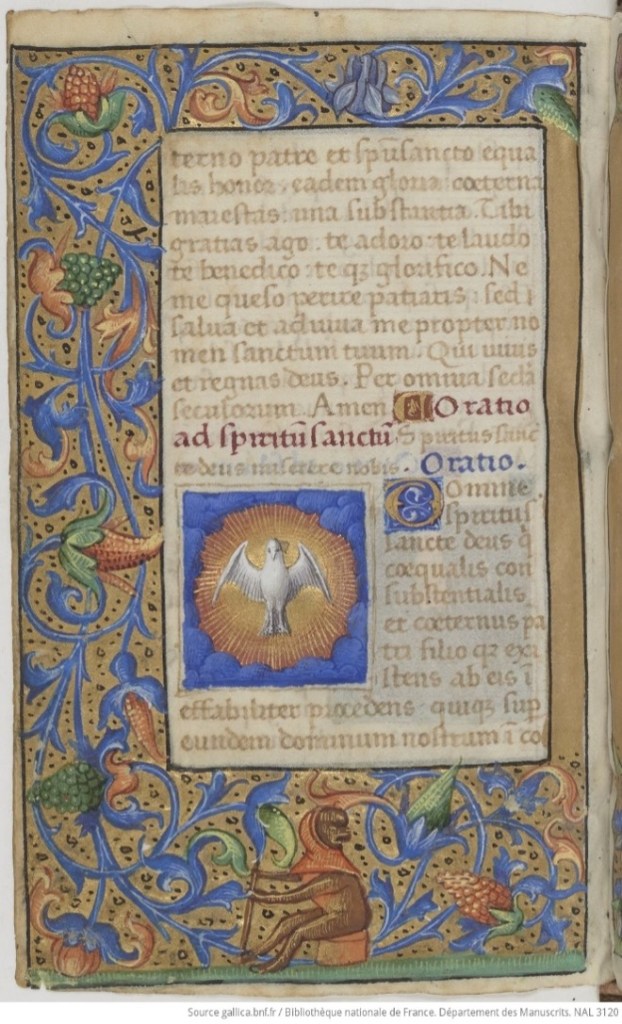 terno patre et spūsancto equa
lis honor, eadem gloria: cœterna
maiestas: una substantia. Tibi
gratias ago: te adoro: te laudo
te benedico: te qꝫ glorifico. Ne
me queso perire patiaris: sed
salva et adiuva me propter no
men sanctum tuum. Qui vivis
et regnas deus. Per omnia secla
seculorum. Amen Oratio
ad spiritū sanctū Spiritus sanc
te deus miserere nobis. Oratio.
Domine
spiritus
sancte deus q̄
coequalis con
substentialis
et cœternus pa
tri filio qꝫ exi
stens ab eis ī
effabiliter procedens quiqꝫ sup̄
eundem dominum nostrum ī co
Source gallica.bnf.fr / Bibliothèque nationale de France. Département des Manuscrits. NAL 3120